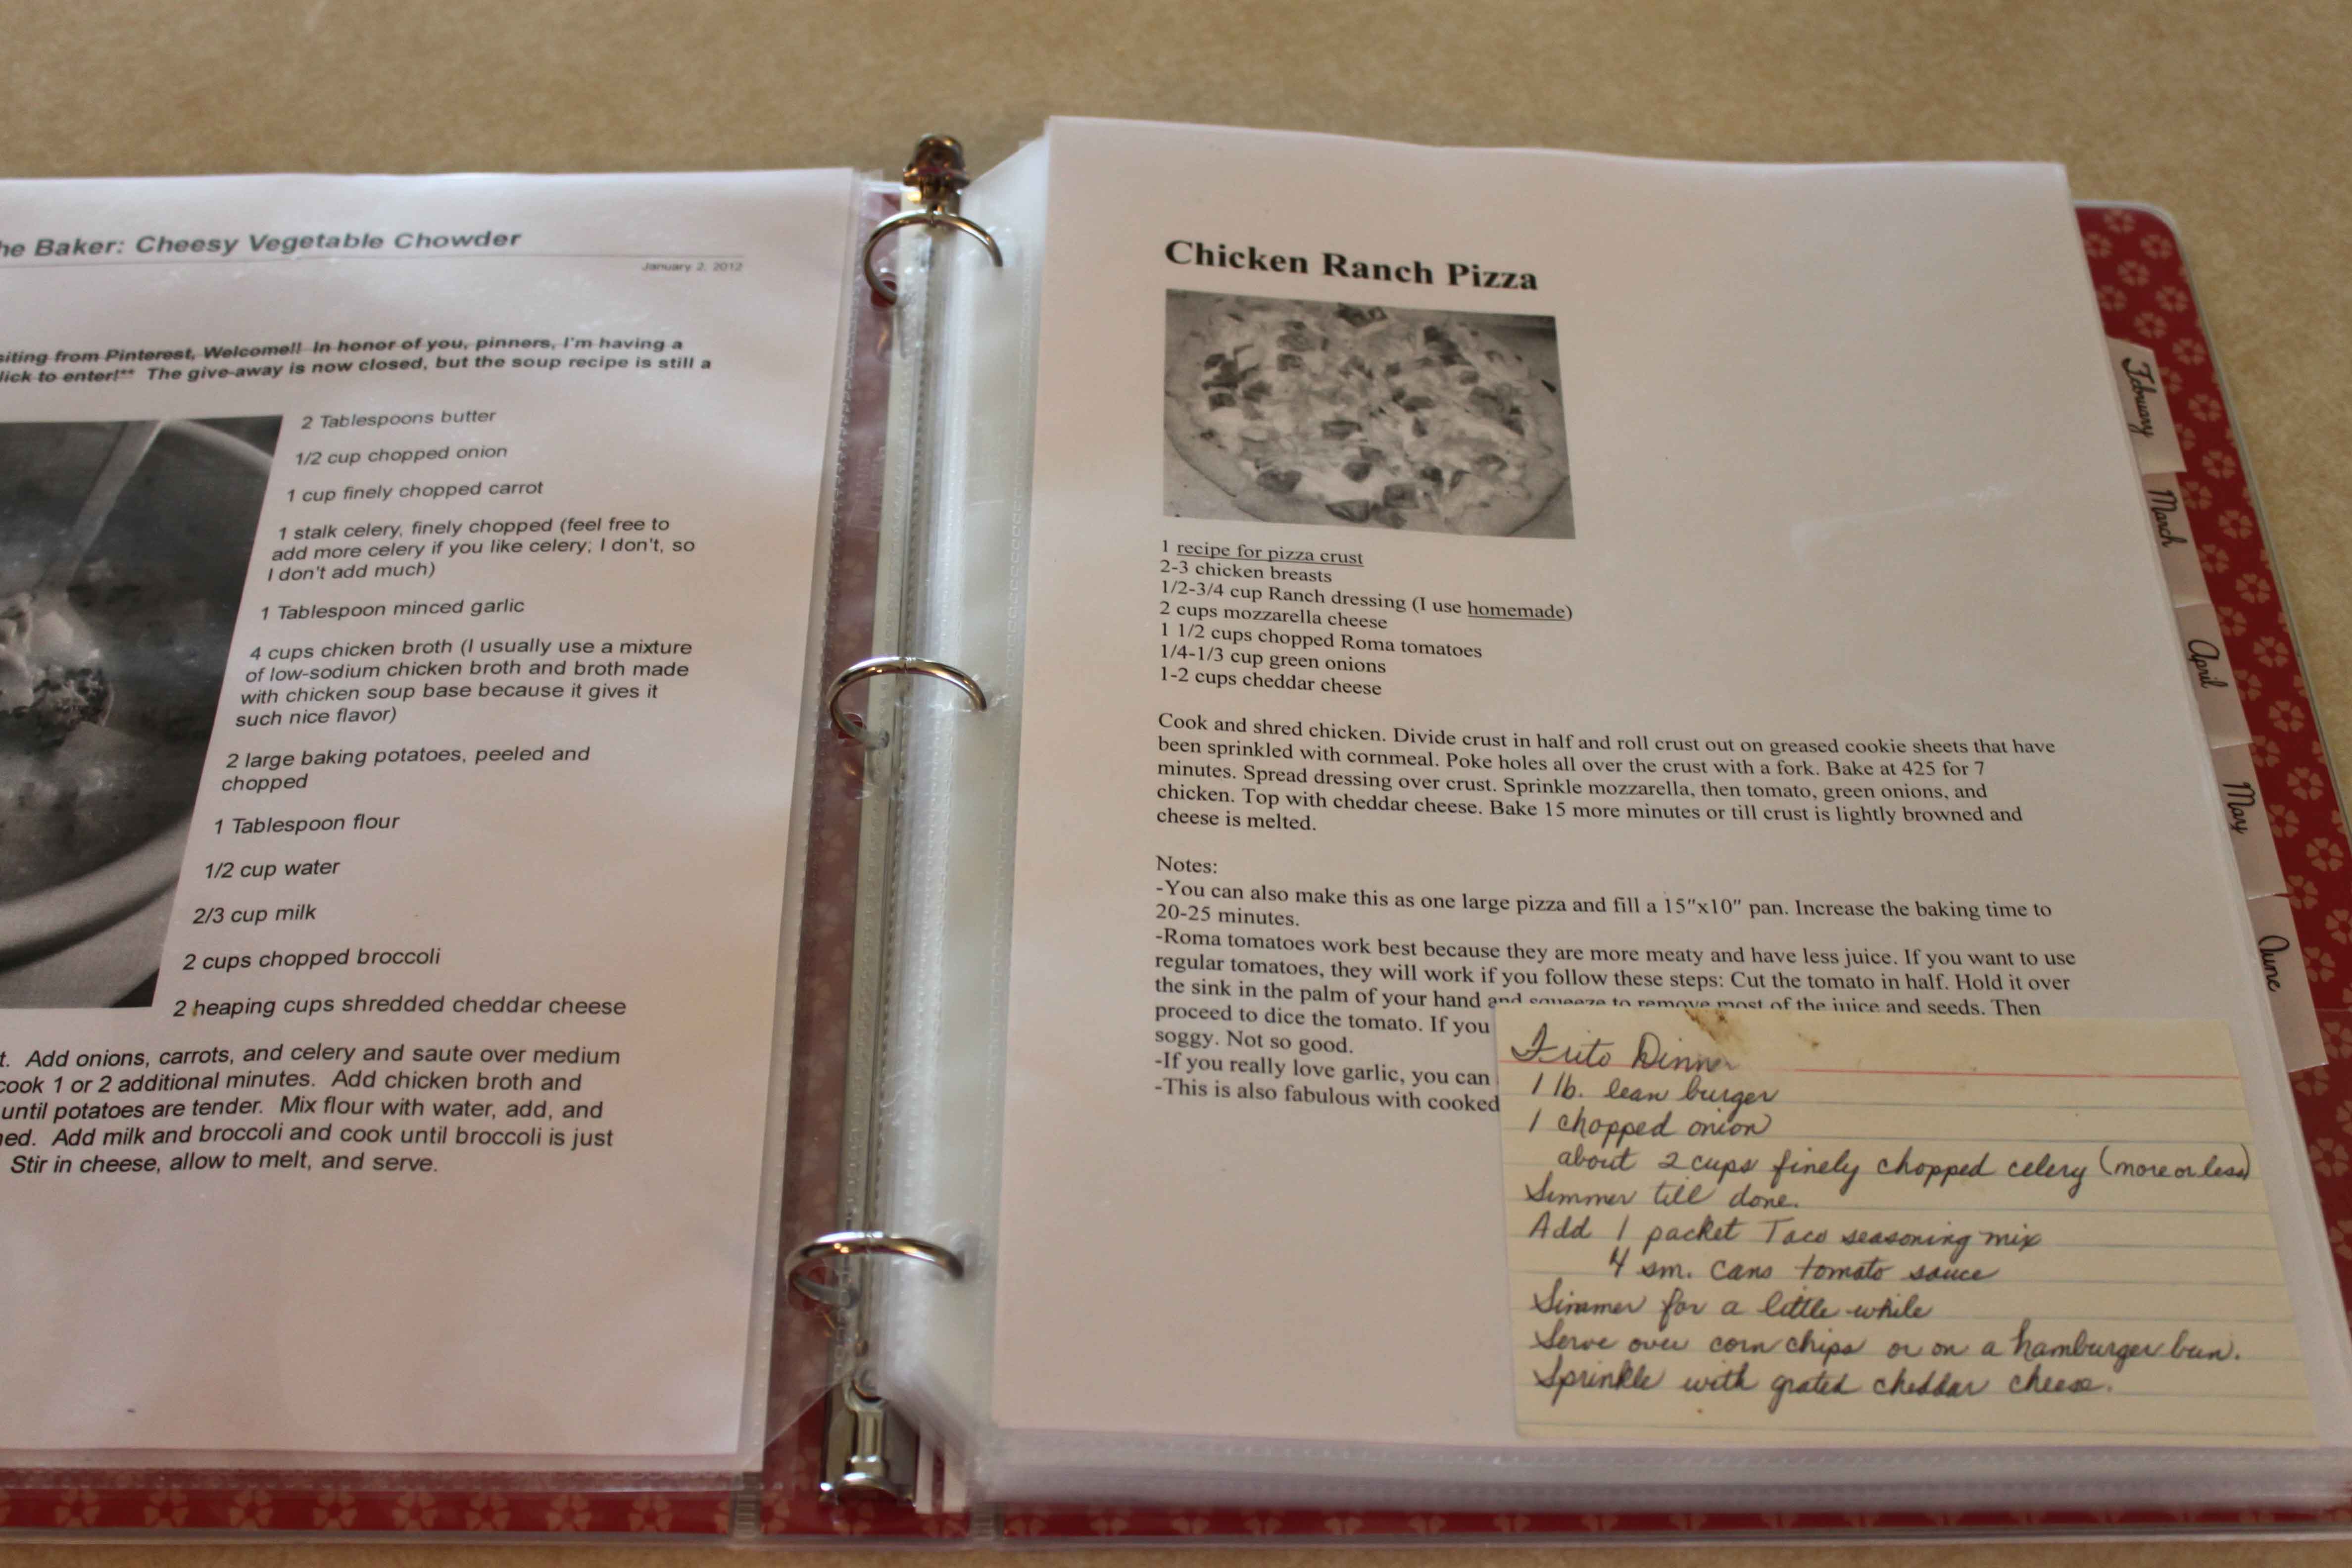 he Baker: Cheesy Vegetable Chowder
January 2, 2012
siting from Pinterest, Welcome!! In honor of you, pinners, I'm having a
lick to enter!** The give-away is now closed, but the soup recipe is still a
2 Tablespoons butter
1/2 cup chopped onion
1 cup finely chopped carrot
1 stalk celery, finely chopped (feel free to
add more celery if you like celery; I don't, so
I don't add much)
1 Tablespoon minced garlic
4 cups chicken broth (I usually use a mixture
of low-sodium chicken broth and broth made
with chicken soup base because it gives it
such nice flavor)
2 large baking potatoes, peeled and
chopped
1 Tablespoon flour
1/2 cup water
2/3 cup milk
2 cups chopped broccoli
2 heaping cups shredded cheddar cheese
t. Add onions, carrots, and celery and saute over medium
cook 1 or 2 additional minutes. Add chicken broth and
until potatoes are tender. Mix flour with water, add, and
ned. Add milk and broccoli and cook until broccoli is just
Stir in cheese, allow to melt, and serve.
Chicken Ranch Pizza
1 recipe for pizza crust
2-3 chicken breasts
1/2-3/4 cup Ranch dressing (I use homemade)
2 cups mozzarella cheese
1 1/2 cups chopped Roma tomatoes
1/4-1/3 cup green onions
1-2 cups cheddar cheese
Cook and shred chicken. Divide crust in half and roll crust out on greased cookie sheets that have
been sprinkled with cornmeal. Poke holes all over the crust with a fork. Bake at 425 for 7
minutes. Spread dressing over crust. Sprinkle mozzarella, then tomato, green onions, and
chicken. Top with cheddar cheese. Bake 15 more minutes or till crust is lightly browned and
cheese is melted.
Notes:
-You can also make this as one large pizza and fill a 15"x10" pan. Increase the baking time to
20-25 minutes.
-Roma tomatoes work best because they are more meaty and have less juice. If you want to use
regular tomatoes, they will work if you follow these steps: Cut the tomato in half. Hold it over
the sink in the palm of your hand and squeeze to remove most of the juice and seeds. Then
proceed to dice the tomato. If you
soggy. Not so good.
-If you really love garlic, you can
-This is also fabulous with cooked
Frito Dinn
1 lb. lean burger
1 chopped onion
about 2 cups finely chopped celery (more or less)
Simmer till done.
Add 1 packet Taco seasoning mix
4 sm. cans tomato sauce
Simmer for a little while
Serve over corn chips or on a hamburger bun.
Sprinkle with grated cheddar cheese.
February
March
April
May
June